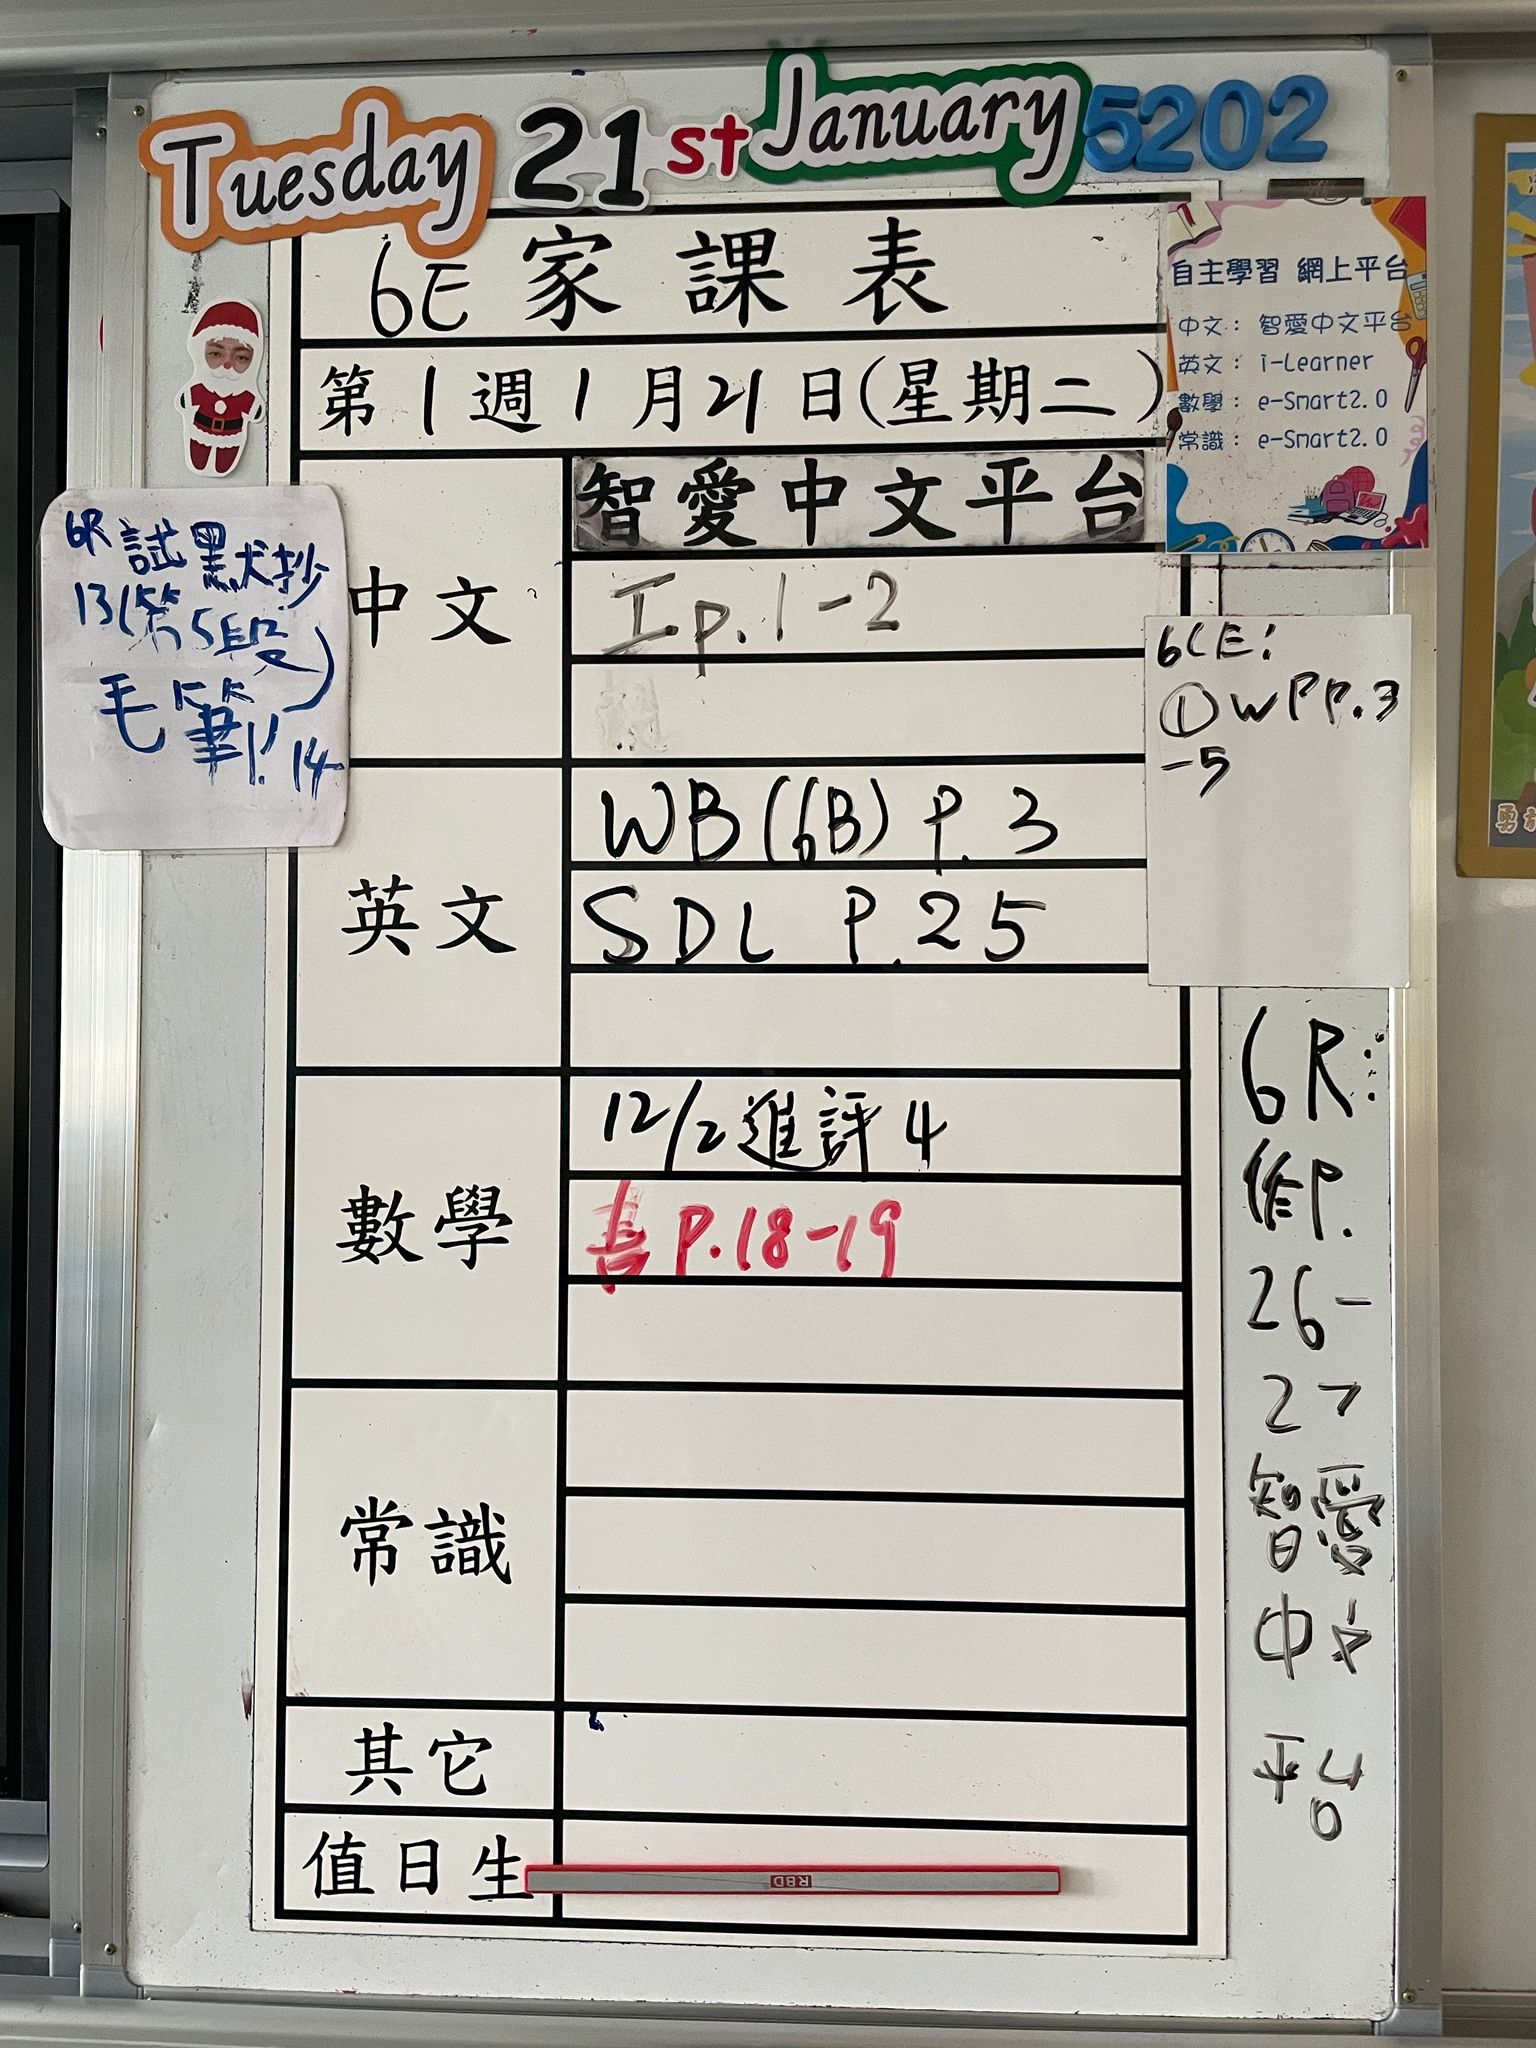 Tuesday 21st January 5202
6E 家課表
第1週1月21日(星期二)
自主學習 網上平台
中文： 智愛中文平台
英文： i-Learner
數學： e-Smart2.0
常識： e-Smart2.0
中文
智愛中文平台
工p.1-2
6R 試默抄
13(第5段)
毛筆P.14
6CE:
①WPP.3
-5
英文
WB(6B) P.3
SDL P.25
數學
12/2進評4
書P.18-19
常識
其它
值日生
RBD
6R:
P.
26-
27
智愛
中文
平台